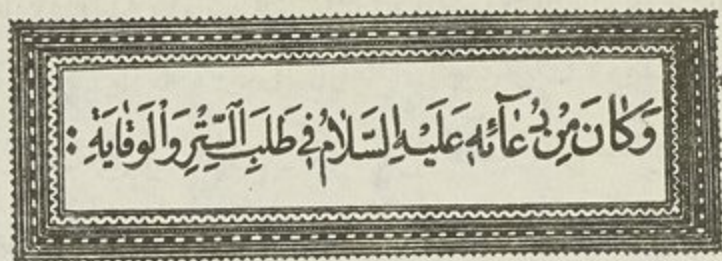 وَكَانَ مِنْ دُعَآئِهِ عَلَيْهِ السَّلَامُ فِي طَلَبِ السِّتْرِ وَالْوِقَايَةِ: